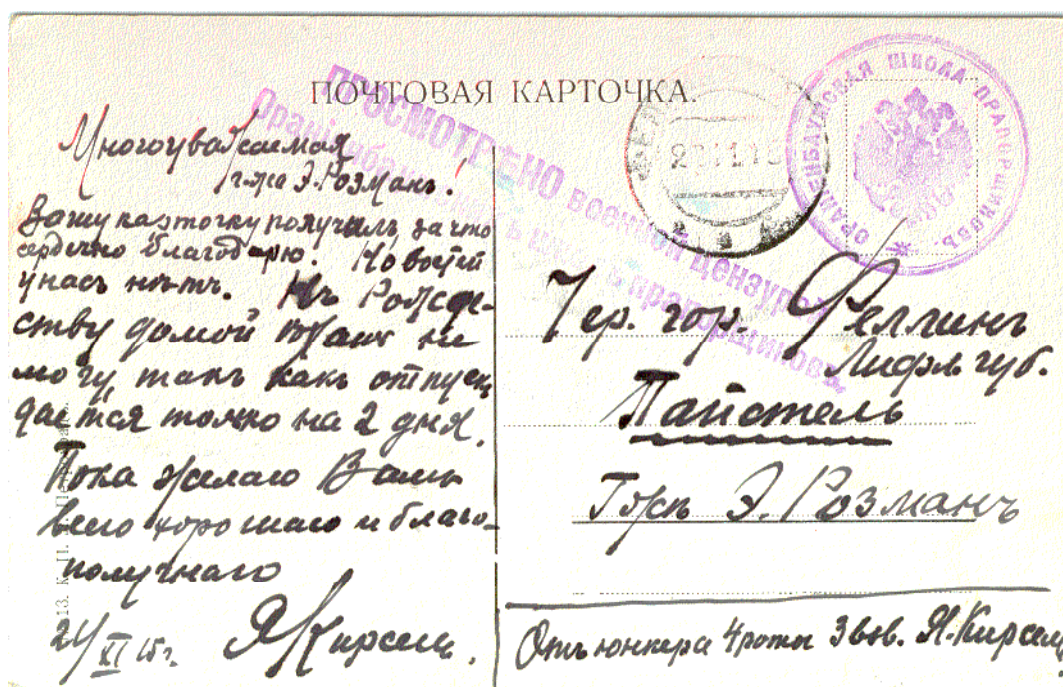 ПОЧТОВАЯ КАРТОЧКА.
ПРОСМОТРЕНО военной цензурой
Ораніенбаумская школа прапорщиковъ.
ОРАНІЕНБАУМСКАЯ ШКОЛА ПРАПОРЩИКОВЪ.
Многоуважаемая
г-жа Э. Розманъ!
Вашу карточку получилъ, за что
сердечно благодарю. Новостей
у насъ нѣтъ. Къ Рождe-
ству домой ѣхать не
могу, такъ какъ отпускъ
дается только на 2 дня.
Пока желаю Вамъ
всего хорошаго и благо-
получнаго
24/XI 15 г. Я. Кирсель.
Чер. гор. Феллинъ
Лифл. губ.
Пайстель
Г-жѣ Э. Розманъ
Отъ юнкера 4 роты 3 взв. Я. Кирсель